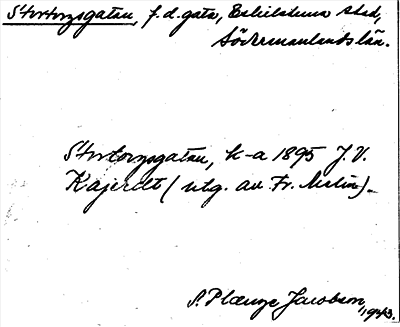 Stortorgsgatan, f.d. gata, Eskilstuna stad,
Södermanlands län.
Stortorgsgatan, k-a 1895 J. V.
Kajerdt (utg. av Fr. Melin).
S. Plænge Jacobson, 1943.